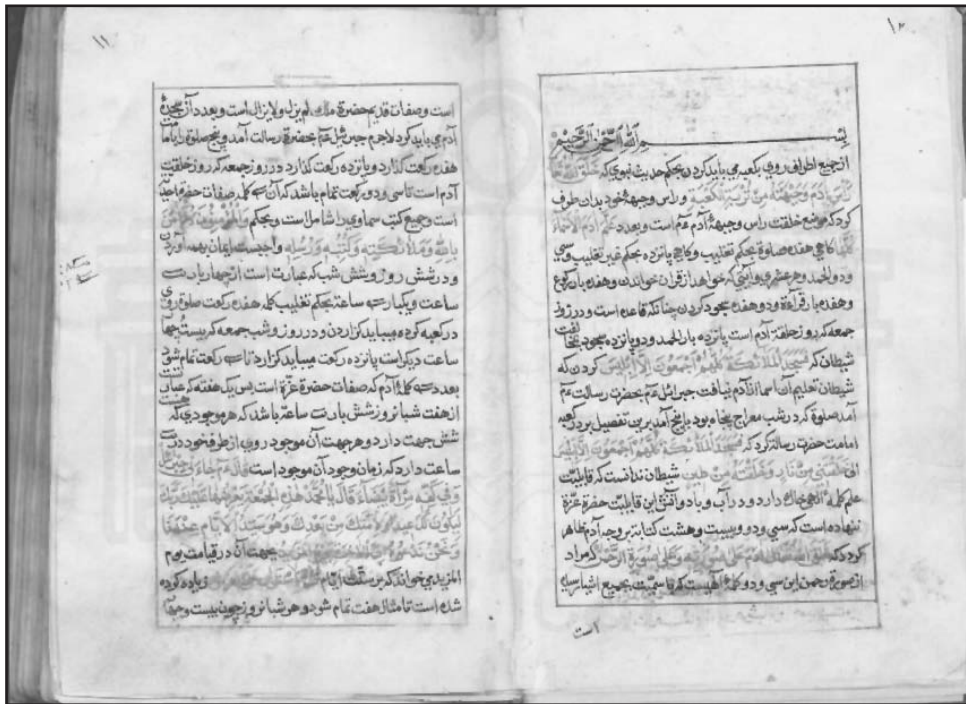 ۱۰
بسم الله الرحمن الرحیم
از جمیع اطراف روی بکعبه می باید کردن بحکم حدیث نبوی که خلق الله
رأس آدم وجبهته من تربة الکعبة وراس وجبههٔ خود بدان طرف
کرد که موضع خلقت راس وجبههٔ آدم عم است وبعدد علم آدم الاسماء
کلها کاهی هفده صلوة بحکم تغلیب وکاهی پانزده بحکم غیر تغلیب وسی
ودو الحمد وهر عشری وآیتی که خواهد از قران خواندن وهفده بار رکوع
وهفده بار قراءة ودو هفده سجود کردن چنانکه قاعده است ودر روز
جمعه که روز خلقة آدم است پانزده بار الحمد ودو پانزده سجود
شیطان که فسجد الملائکة کلهم اجمعون الا ابلیس کردن که
شیطان تعلیم آن اسما از آدم نیافت جبرائیل عم بحضرت رسالت عم
آمد صلوة که در شب معراج پنجاه بود با پنج آمد برین تفصیل بود در کعبه
امامت حضرت رسالة کرد که فسجد الملائکة کلهم اجمعون الا ابلیس
خلقتنی من نار وخلقته من طین شیطان ندانست که قابلیت
علم کلمهٔ الهی خاک دارد ودر آب وباد وآتش این قابلیت حضرة عزة
ننهاده است که سی ودو وبیست وهشت کتابة بر وجه آدم ظاهر
کرد که خلق الله تعالی آدم علی صورته وعلی صورة الرحمن که مراد
از صورة رحمن این سی ودو کلمهٔ الهیست که قاسمیت بجمیع اشیا
است
۱۱
است وصفات قدیم حضرة ملک لم یزل ولا یزال است وبعدد آن سجدهٔ
آدم می باید کرد لاجرم جبرئیل عم بحضرة رسالت آمد وپنج صلوة را
هفده رکعت گذارد وپانزده رکعت گذارد در روز جمعه که روز خلقت
آدم است تا سی ودو رکعت تمام باشد که آن سی ودو کلمه صفات
است وجمیع کتب سماوی را شامل است وبحکم والمؤمنون کل آمن
بالله وملائکته وکتبه ورسله واجبست ایمان بهمه آوردن
ودر شش روز وشش شب که عبارت است از چهار بار
ساعت ویکبار ساعة بحکم تغلیب کلمه هفده رکعت صلوة روی
در کعبه کرده میباید گزاردن ودر روز وشب جمعه که بیست چهار
ساعت دیگر است پانزده رکعت میباید گزارد تا رکعت تمام شود
بعدد کلمهٔ آدم که صفات حضرة عزة است پس یک هفته که عبارت
از هفت شبانروز شش بار ساعة باشد که هر موجودی که
شش جهت دارد وهر جهت آن موجود روی از طرف خود در
ساعت دارد که زمان وجود آن موجود است قال عم جاءنی جبرئیل
وفی کفه مرآة بیضاء قال یا محمد هذه الجمعة یعرضها علیک ربک
لیکون لک عیدا ولامتک من بعدک وهو سید الایام عندنا
ونحن ندعوه یوم المزید بجهت آن در قیامت یوم
المزید می خوانند که بر ستة ایام زیاده کرده
شده است تا مثال هفت تمام شود وهر شبانروز چون بیست وچهار